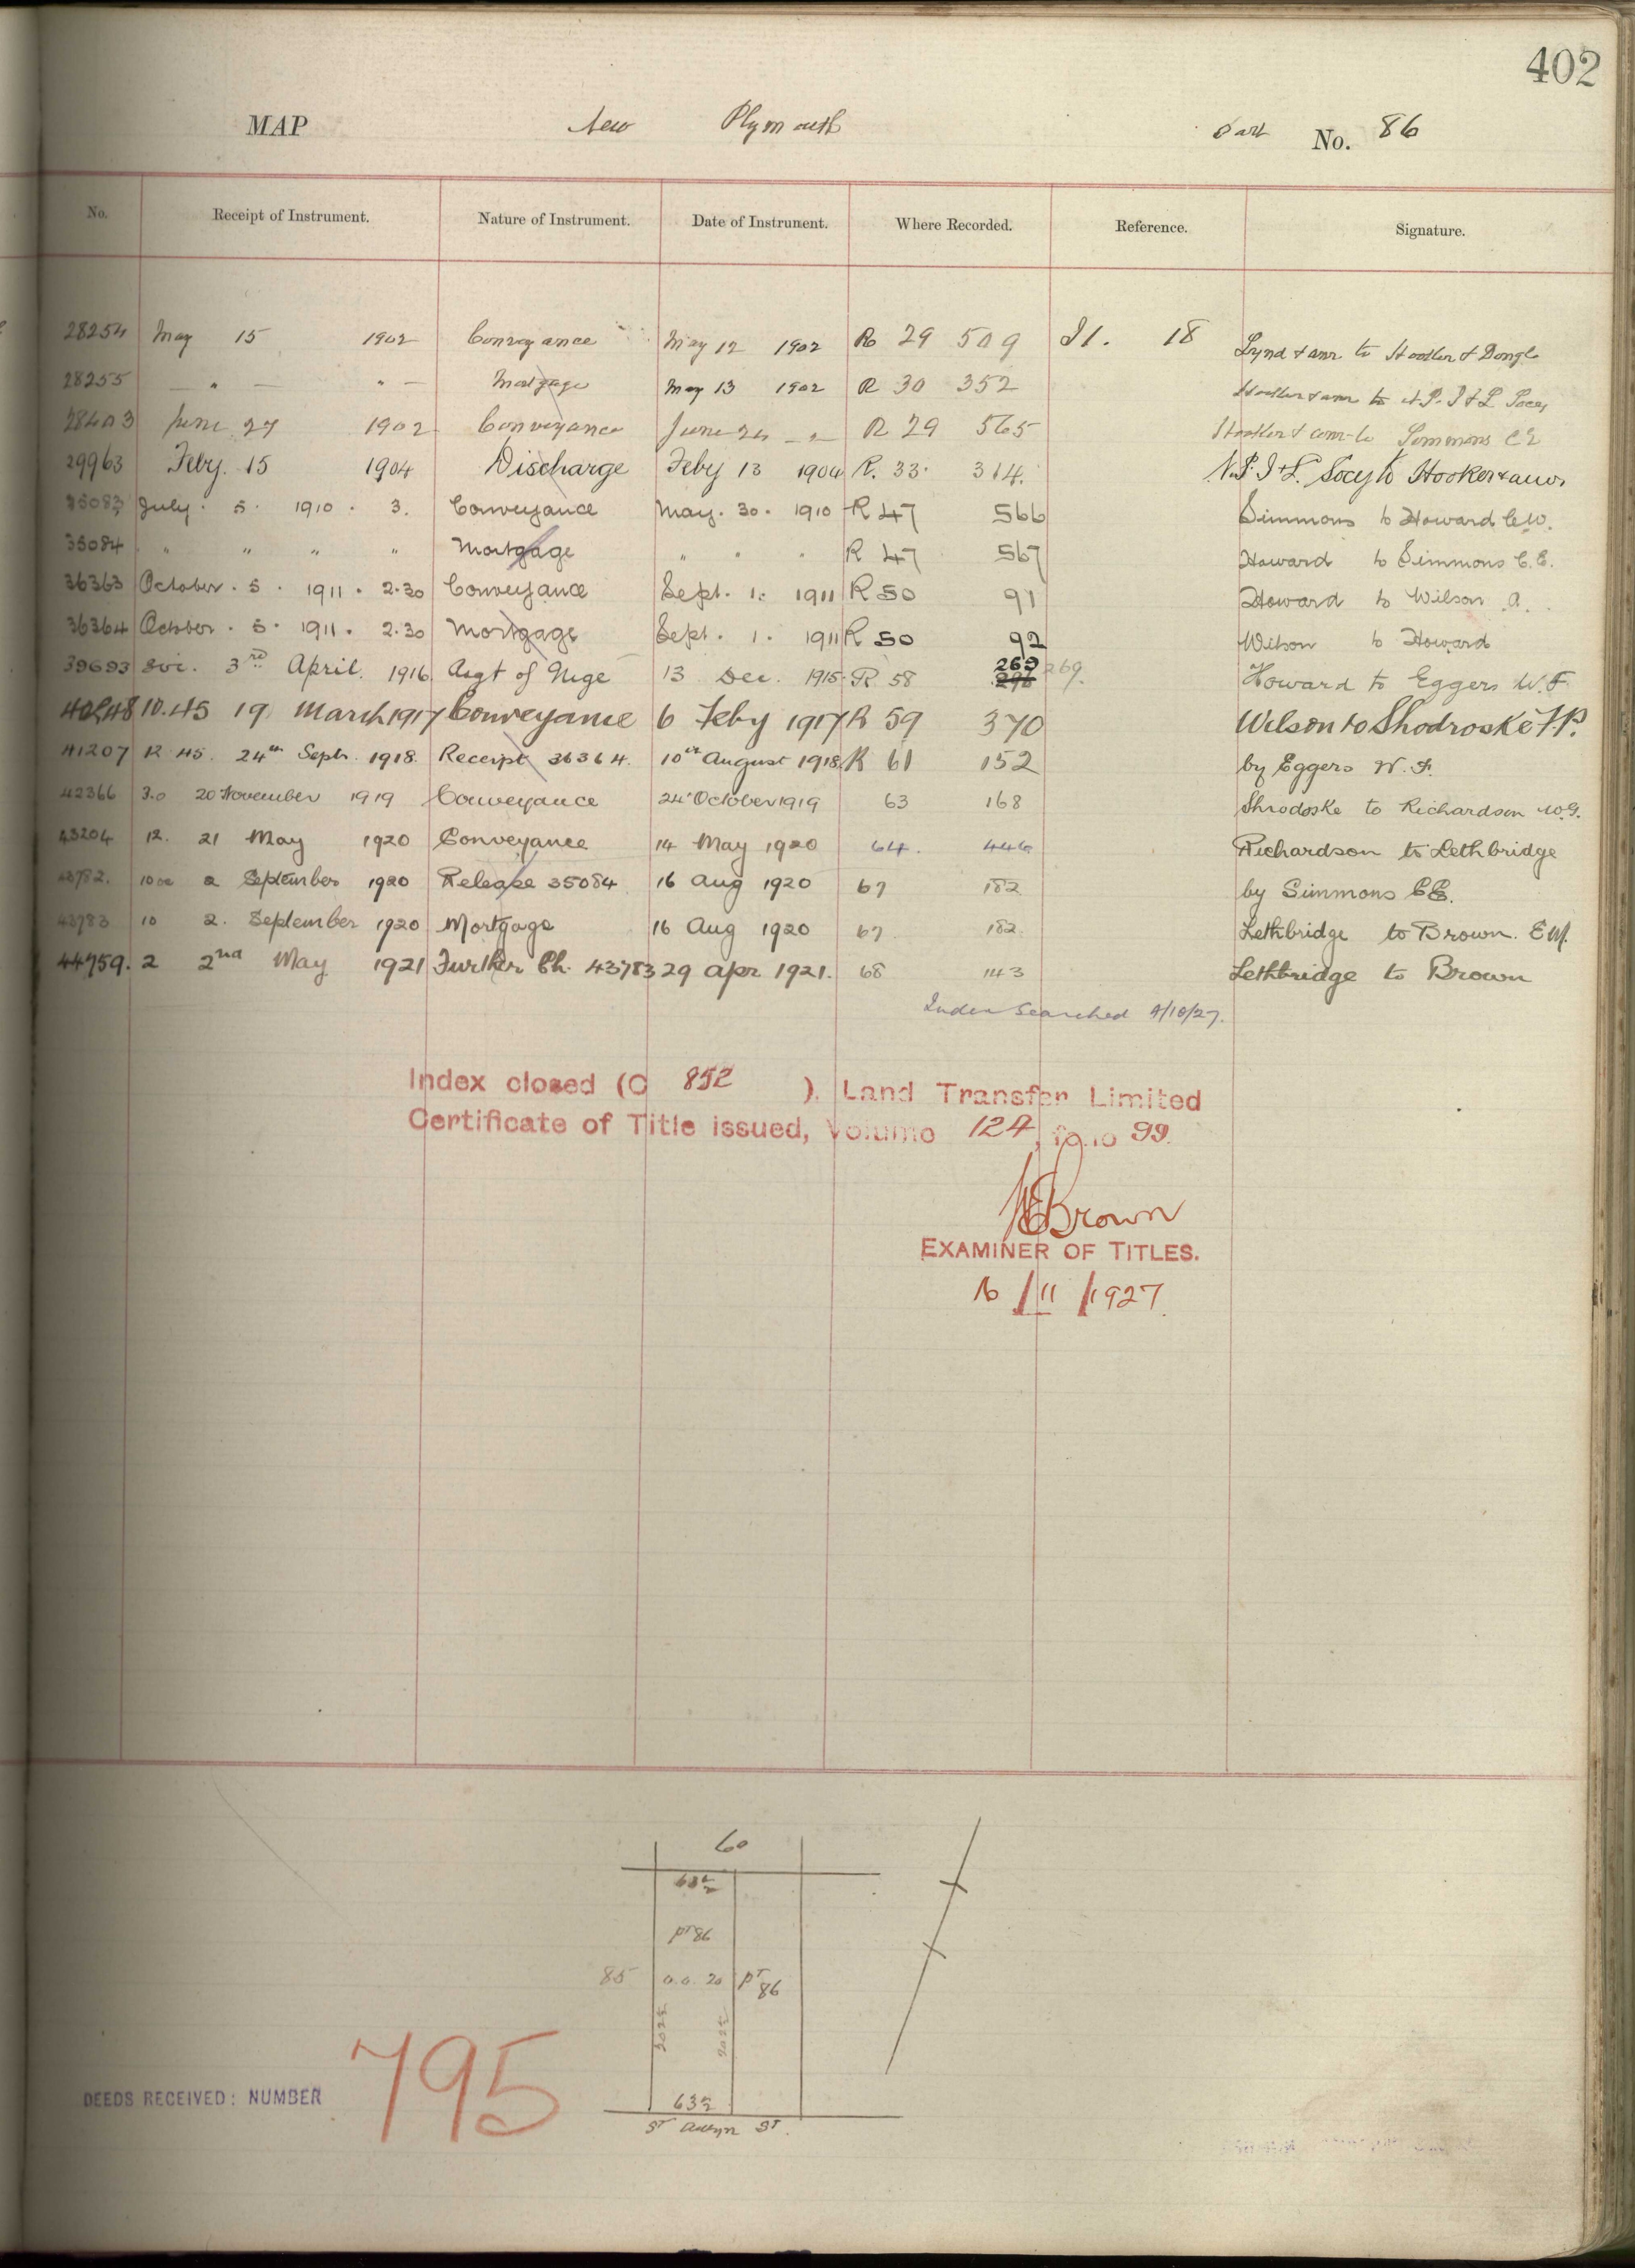 402
MAP New Plymouth Part No. 86
No. Receipt of Instrument. Nature of Instrument. Date of Instrument. Where Recorded. Reference. Signature.
28254 May 15 1902 Conveyance May 12 1902 R 29 509 I1. 18 Lynd & anr. to Hooker &
28255 — " — " — Mortgage May 13 1902 R 30 352 Hooker & anr to N.P. I & L Socy
28403 June 27 1902 Conveyance June 24 — " — R 29 565 Hooker & anr to Simmons C E
29963 Feby. 15 1904 Discharge Feby 13 1904 R. 33. 314. N.P. I & L. Socy to Hooker & anor.
35083 July. 5. 1910. 3. Conveyance May. 30. 1910 R 47 566 Simmons to Howard C.W.
35084 " " " " Mortgage " " " R 47 567 Howard to Simmons C.E.
36363 October. 5. 1911. 2.30 Conveyance Sept. 1. 1911 R 50 91 Howard to Wilson A.
36364 October. 5. 1911. 2.30 Mortgage Sept. 1. 1911 R 50 92 Wilson to Howard
39693 3rd April. 1916 Asgt of Mge 13 Dec. 1915 R 58 269 296 269. Howard to Eggers W.F.
10.45 19 March 1917 Conveyance 6 Feby 1917 R 59 370 Wilson to Shodroske F P.
41207 12.45. 24th Septr. 1918. Receipt 36364. 10th August 1918 R 61 152 by Eggers W. F.
42366 3.0 20 November 1919 Conveyance 24 October 1919 63 168 Shrodoske to Richardson W.G.
43204 12. 21 May 1920 Conveyance 14 May 1920 64. 446 Richardson to Lethbridge
43782. 10 2 September 1920 Release 35084 16 Aug 1920 67 182 by Simmons C E.
43783 10 2. September 1920 Mortgage 16 Aug 1920 67 182 Lethbridge to Brown. E M.
44759. 2 2nd May 1921 Further Ch. 43783 29 Apr 1921. 68 143 Lethbridge to Brown
Index Searched 4/10/27.
Index closed (C 852 ). Land Transfer Limited
Certificate of Title issued, Volume 124, folio 99.
Brown
EXAMINER OF TITLES.
16/11/1927.
60
63½
PT 86
85 0.0.20 PT 86
202½ 202½
63½
ST Aubyn ST.
DEEDS RECEIVED: NUMBER 795